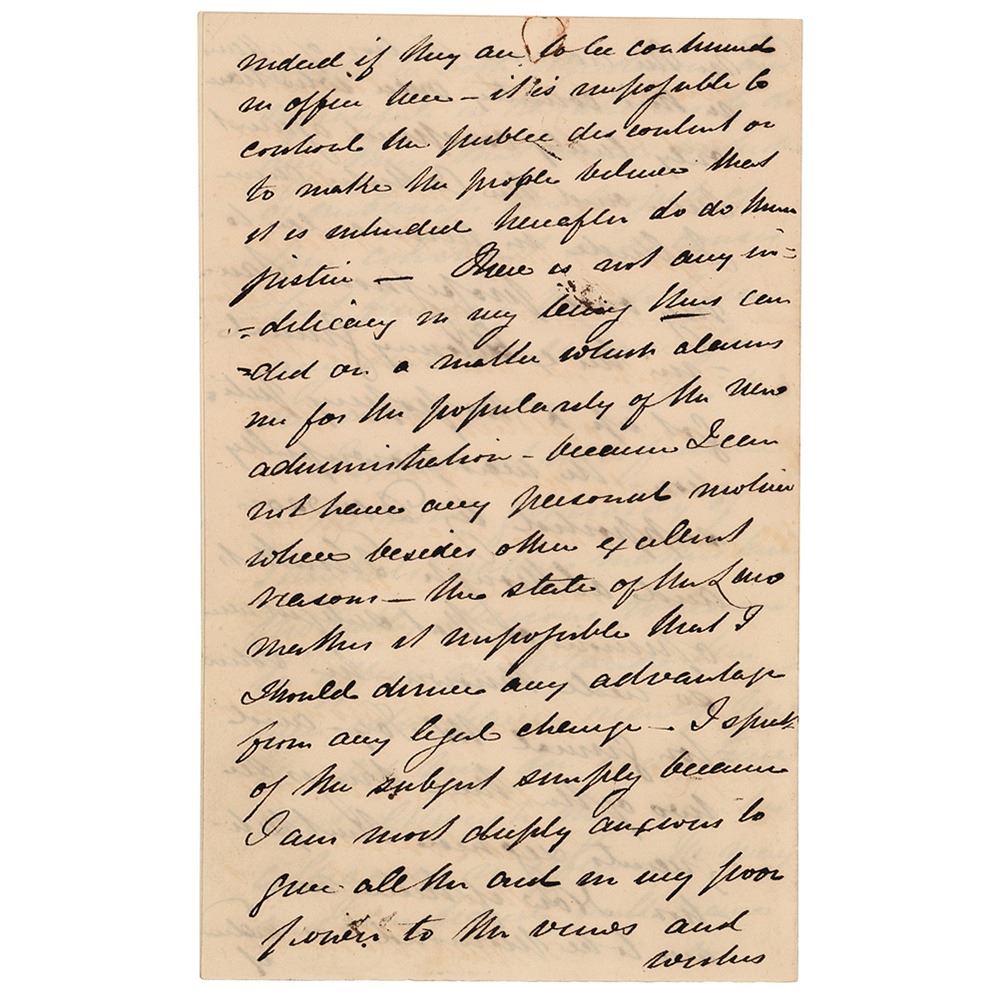 indeed if they are to be continued
in office here – it is impossible to
control the public discontent or
to make the people believe that
it is intended hereafter do do them
justice — There is not any in=
=delicacy in my being thus can
=did on a matter which alarms
me for the popularity of the new
administration – because I can
not have any personal motive
where besides other excellent
reasons – the state of the Law
makes it impossible that I
should derive any advantage
from any legal change – I speak
of the subject simply because
I am most deeply anxious to
give all the aid in my poor
power to the views and
wishes